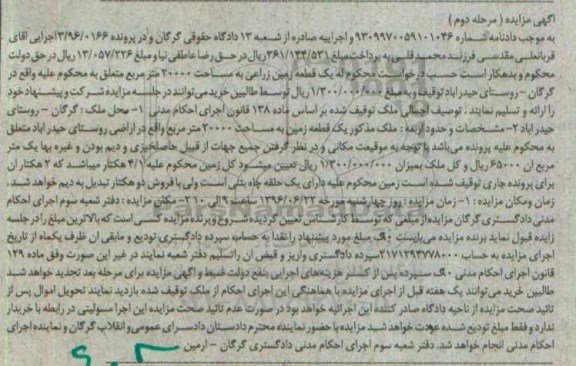 آگهی مزایده ( مرحله دوم )
به موجب دادنامه شماره ۹۳۰۹۹۷۰۰۵۹۱۰۱۰۴۶ و اجراییه صادره از شعبه ۱۳ دادگاه حقوقی گرگان و در پرونده ۳/۹۶/۰۱۶۶ اجرایی آقای
قربانعلی مقدسی فرزند محمدقلی به پرداخت مبلغ ۳۶۱/۱۴۴/۵۳۱ ریال در حق رضا عاطفی نیا و مبلغ ۱۳/۰۵۷/۲۲۶ ریال در حق دولت
محکوم و بدهکار است حسب درخواست محکوم له یک قطعه زمین زراعی به مساحت ۲۰۰۰۰ متر مربع متعلق به محکوم علیه واقع در
گرگان - روستای حیدرآباد توقیف و به مبلغ ۱/۳۰۰/۰۰۰/۰۰۰ ریال توسط طالبین خرید می توانند در جلسه مزایده شرکت و پیشنهاد خود
را ارائه و تسلیم نمایند . توصیف اجمالی ملک توقیف شده بر اساس ماده ۱۳۸ قانون اجرای احکام مدنی ۱- محل ملک : گرگان - روستای
حیدر آباد ۲- مشخصات و حدود اربعه : ملک مذکور یک قطعه زمین به مساحت ۲۰۰۰۰ متر مربع واقع در اراضی روستای حیدر آباد متعلق
به محکوم علیه پرونده می باشد با توجه به موقعیت مکانی و در نظر گرفتن جمیع جهات از قبیل حاصلخیزی و دیم بودن و غیره بها یک متر
مربع ان ۶۵۰۰۰ ریال و کل ملک بمیزان ۱/۳۰۰/۰۰۰/۰۰۰ ریال تعیین میشود کل زمین محکوم علیه ۴/۱ هکتار میباشد که ۲ هکتار ان
برای پرونده جاری توقیف شده است زمین محکوم علیه دارای یک حلقه چاه بتنی است ولی با فروش دو هکتار تبدیل به دیم خواهد شد .
زمان ومکان مزایده : ۱- زمان مزایده : روز چهارشنبه مورخه ۱۳۹۶/۰۶/۲۲ ساعت ۹ الی ۱۰ ۲- مکان مزایده : دفتر شعبه سوم اجرای احکام
مدنی دادگستری گرگان مزایده از مبلغی که توسط کارشناس تعیین گردیده شروع و برنده مزایده کسی است که بالاترین مبلغ را در جلسه
زایده قبول نماید برنده مزایده می بایست ۱۰٪ مبلغ مورد پیشنهاد را نقدا به حساب سپرده دادگستری تودیع و مابقی ان ظرف یکماه از تاریخ
اجرای مزایده به حساب ۲۱۷۱۲۹۳۷۷۸۰۰۰ سپرده دادگستری واریز و قبض ان را تسلیم دفتر شعبه نمایند در غیر این صورت وفق ماده ۱۲۹
قانون اجرای احکام مدنی ۱۰٪ سپرده پس از کسر هزینه های اجرایی بنفع دولت ضبط و اگهی مزایده برای مرحله بعد تجدید خواهد شد
طالبین خرید می توانند یک هفته قبل از اجرای مزایده با هماهنگی این اجرای احکام از ملک توقیف شده بازدید نمایند تحویل اموال پس از
تائید صحت مزایده از ناحیه دادگاه صادر کننده این اجرائیه خواهد بود در صورت عدم تائید صحت مزایده این اجرا مسولیتی در رابطه با خریدار
ندارد و فقط مبلغ تودیع شده عودت خواهد شد مزایده با حضور نماینده محترم دادستان دادسرای عمومی و انقلاب گرگان و نماینده اجرای
احکام مدنی انجام خواهد شد. دفتر شعبه سوم اجرای احکام مدنی دادگستری گرگان - ارمین